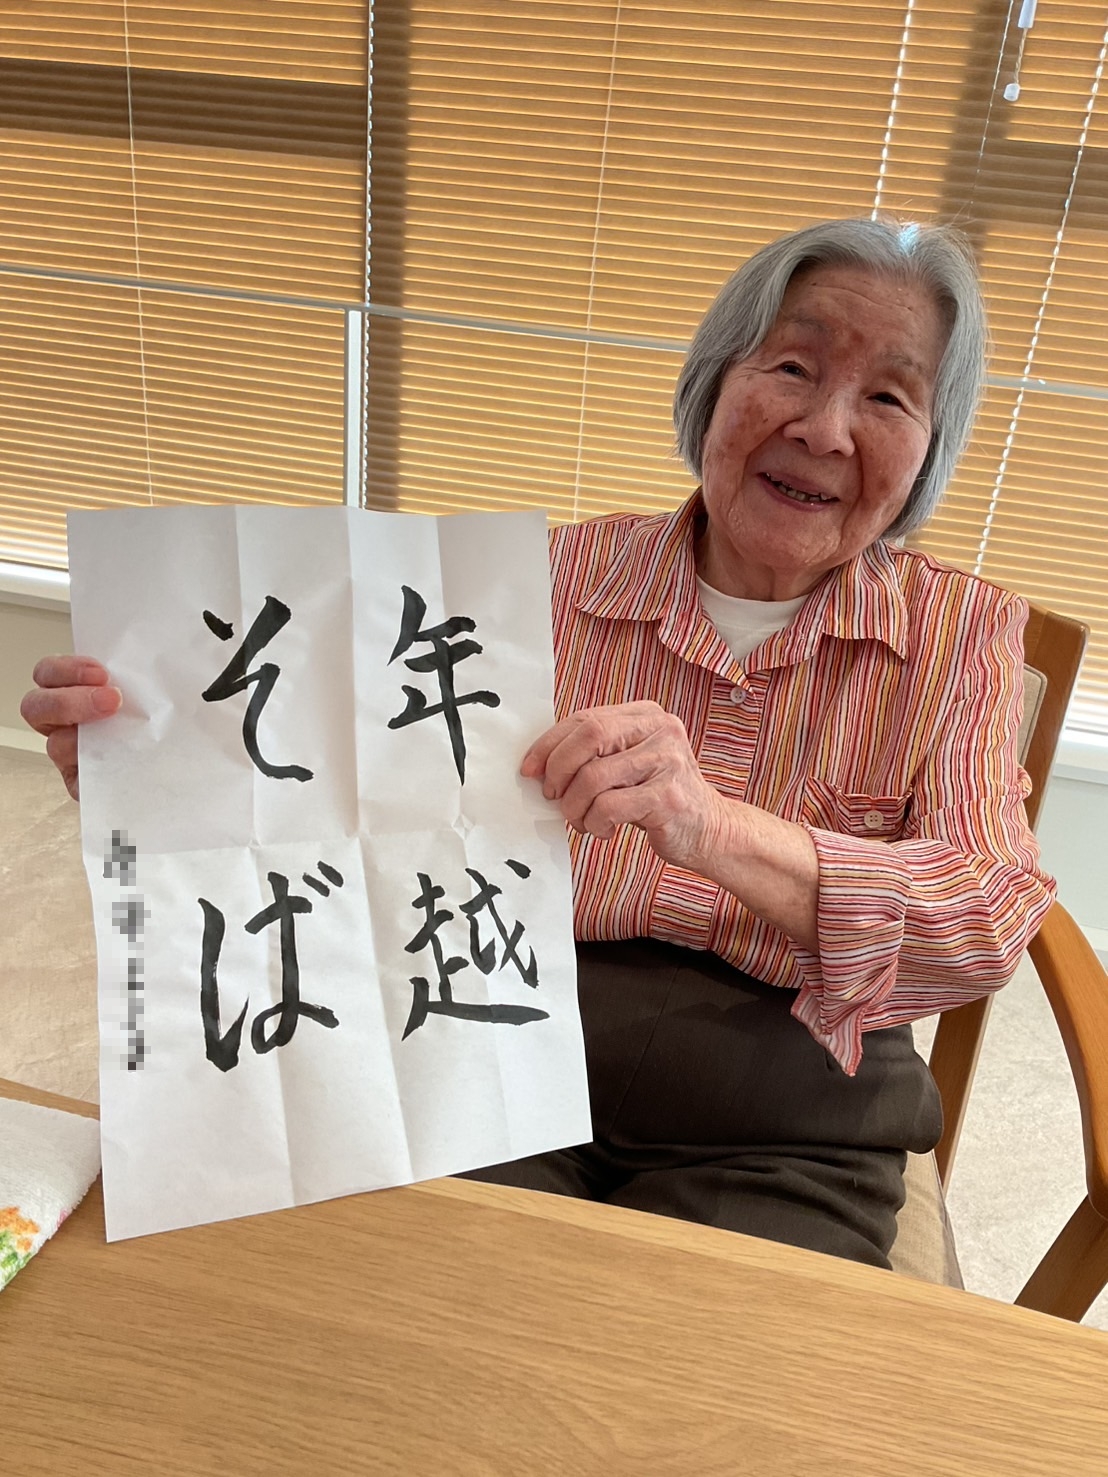 年越
そば